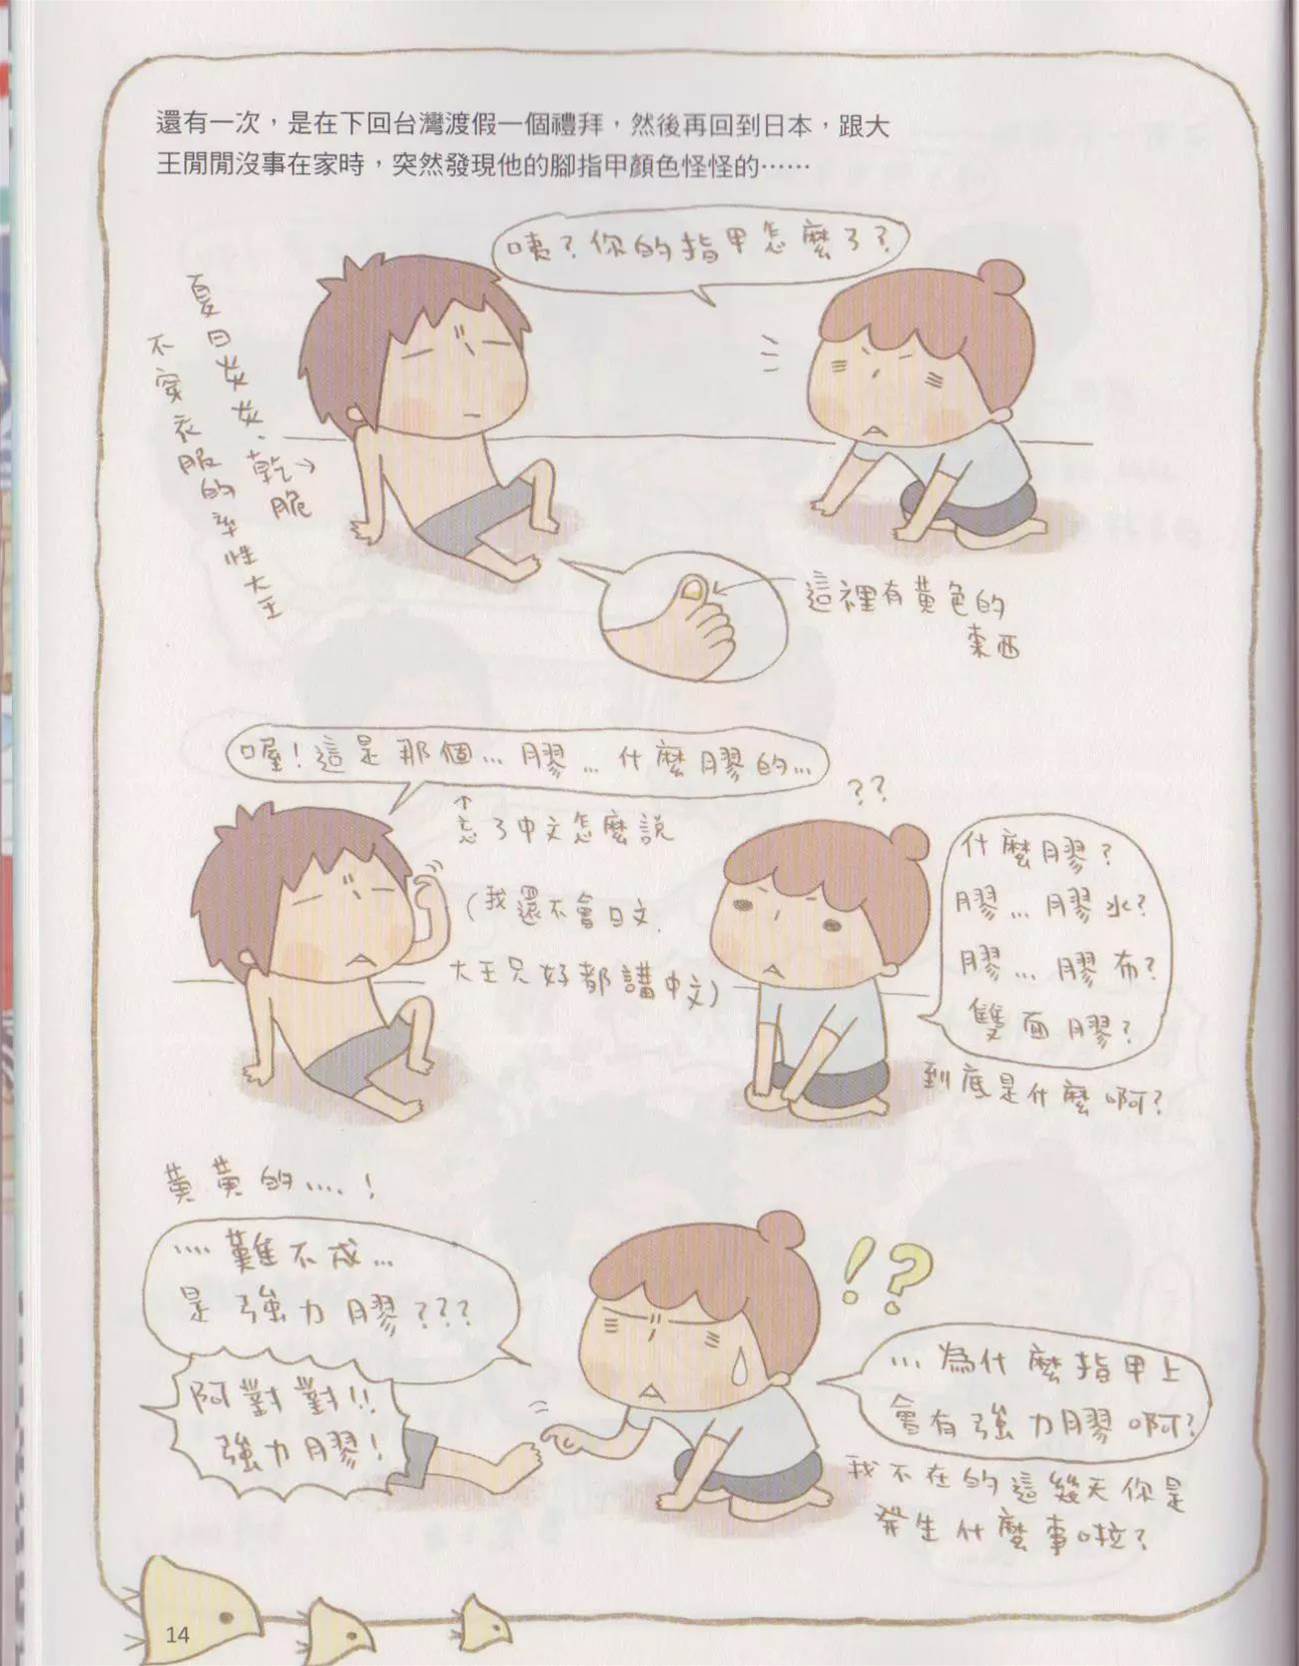 還有一次，是在下回台灣渡假一個禮拜，然後再回到日本，跟大
王閒閒沒事在家時，突然發現他的腳指甲顏色怪怪的……
咦？你的指甲怎麼了？
夏日炎炎、乾脆
不穿衣服的率性大王
這裡有黃色的
東西
喔！這是那個…膠…什麼膠的…
忘了中文怎麼說
（我還不會日文，
大王只好都講中文）
??
什麼膠？
膠…膠水？
膠…膠布？
雙面膠？
到底是什麼啊？
黃黃的….！
….難不成…
是強力膠???
阿對對!!
強力膠！
!?
…為什麼指甲上
會有強力膠啊？
我不在的這幾天你是
發生什麼事啦？
14